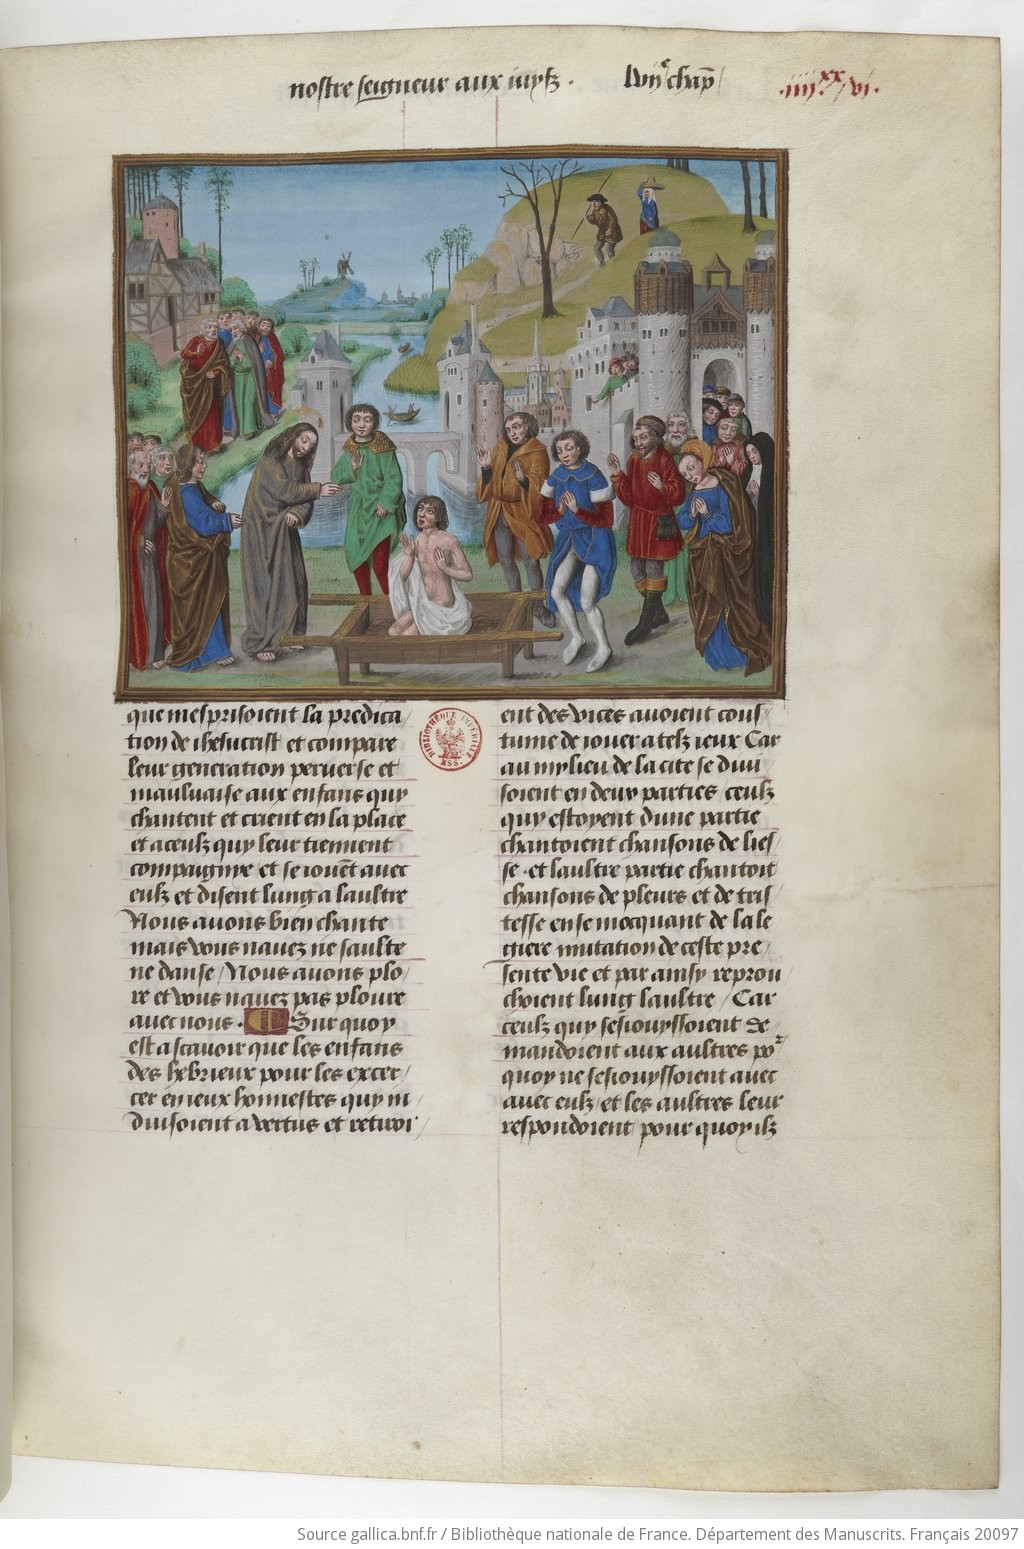 nostre seigneur aux iuyfz · lviij^e chap̄
·iiij^xx/vi·
que mesprisoient la predica/
tion de ihesucrist et compare
leur generation perverse et
mauluaise aux enfans quy
chantent et crient en la place
et a ceulz quy leur tiennent
compaignye et se iouēt avec
eulz et disent lung a laultre
Nous auons bien chante
mais vous nauez ne saulte
ne danse / Nous auons plo/
re et vous nauez pas ploure
avec nous · Sur quoy
est a scavoir que les enfans
des hebrieux pour les excer/
cer en ieux honnestes quy in/
duisoient a vertus et retiroi/
ent des vices avoient cous/
tume de iouer a telz ieux Car
au mylieu de la cite se divi/
soient en deux parties ceulz
quy estoyent dune partie
chantoient chansons de lies/
se · et laultre partie chantoit
chansons de pleurs et de tris/
tesse en se mocquant de la le/
giere mutation de ceste pre/
sente vie et par ainsy reprou/
choient lung laultre / Car
ceulz quy sesiouyssoient de/
mandoient aux aultres po^r
quoy ne sesiouyssoient avec
avec eulz / et les aultres leur
respondoient pour quoy ilz
BIBLIOTHÈQUE IMPÉRIALE
MSS.
Source gallica.bnf.fr / Bibliothèque nationale de France. Département des Manuscrits. Français 20097